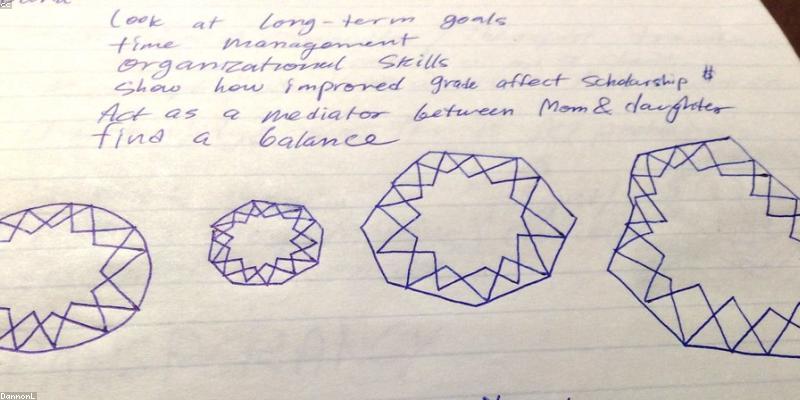 Look at long-term goals
time management
organizational skills
show how improved grade affect scholarship $
Act as a mediator between Mom & daughter
find a balance
DannonL